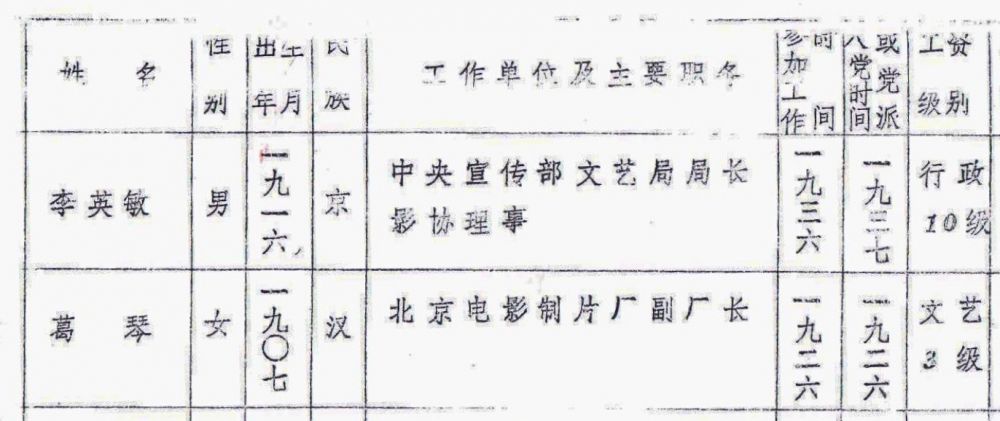 姓 名 性别 出生年月 民族 工作单位及主要职务 参加工作时间 入党时间或党派 工资级别
李英敏 男 一九一六, 京 中央宣传部文艺局局长 一九三六 一九三七 行政
影协理事 10级
葛 琴 女 一九〇七 汉 北京电影制片厂副厂长 一九二六 一九二六 文艺
3级